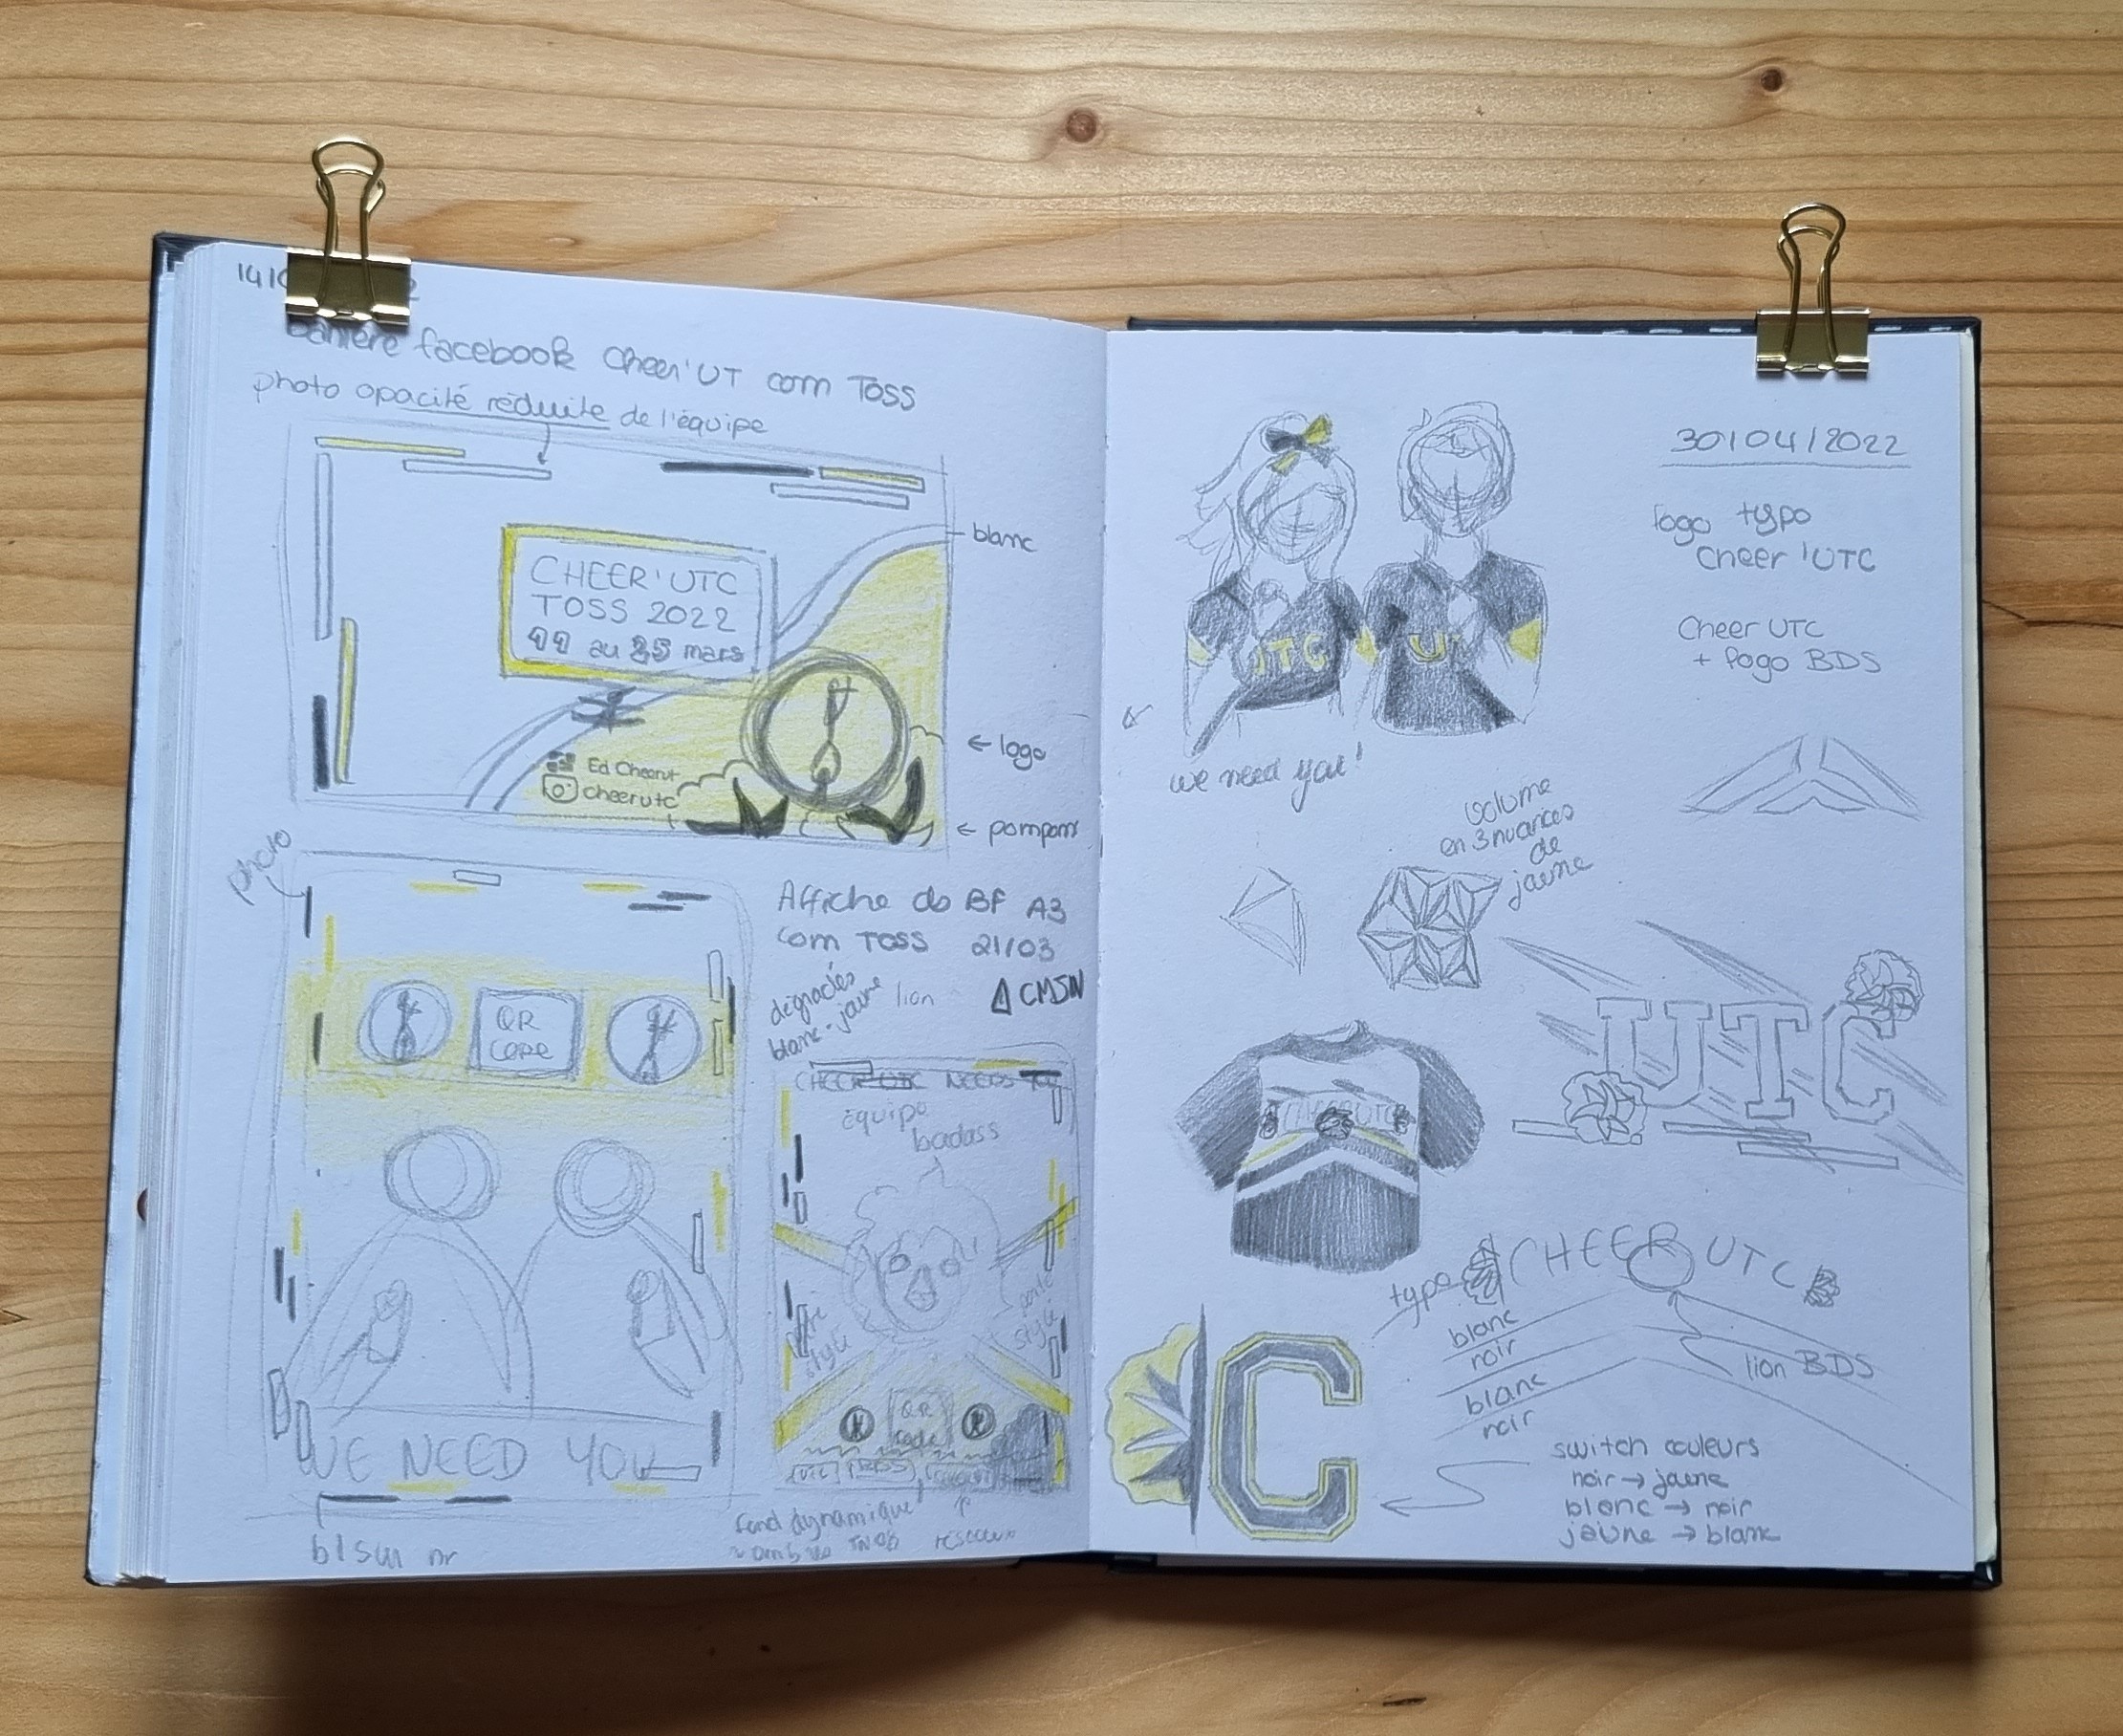 banière facebook Cheer'UT com Toss
photo opacité réduite de l'équipe
CHEER'UTC
TOSS 2022
au 25 mars
blanc
← logo
Ed Cheerut
cheerutc
← pompoms
photo
QR
code
WE NEED YOU
Affiche do BF A3
com Toss 21/03
dégradés
blanc-jaune
lion
CHEER UTC NEEDS
équipe
badass
style
QR
code
UTC BDS
fond dynamique
30/04/2022
logo typo
Cheer 'UTC
Cheer UTC
+ logo BDS
UTC
U
we need you!
volume
en 3 nuances
de
jaune
UTC
typo CHEER UTC
blanc
noir
blanc
noir
lion BDS
C
switch couleurs
noir → jaune
blanc → noir
jaune → blanc